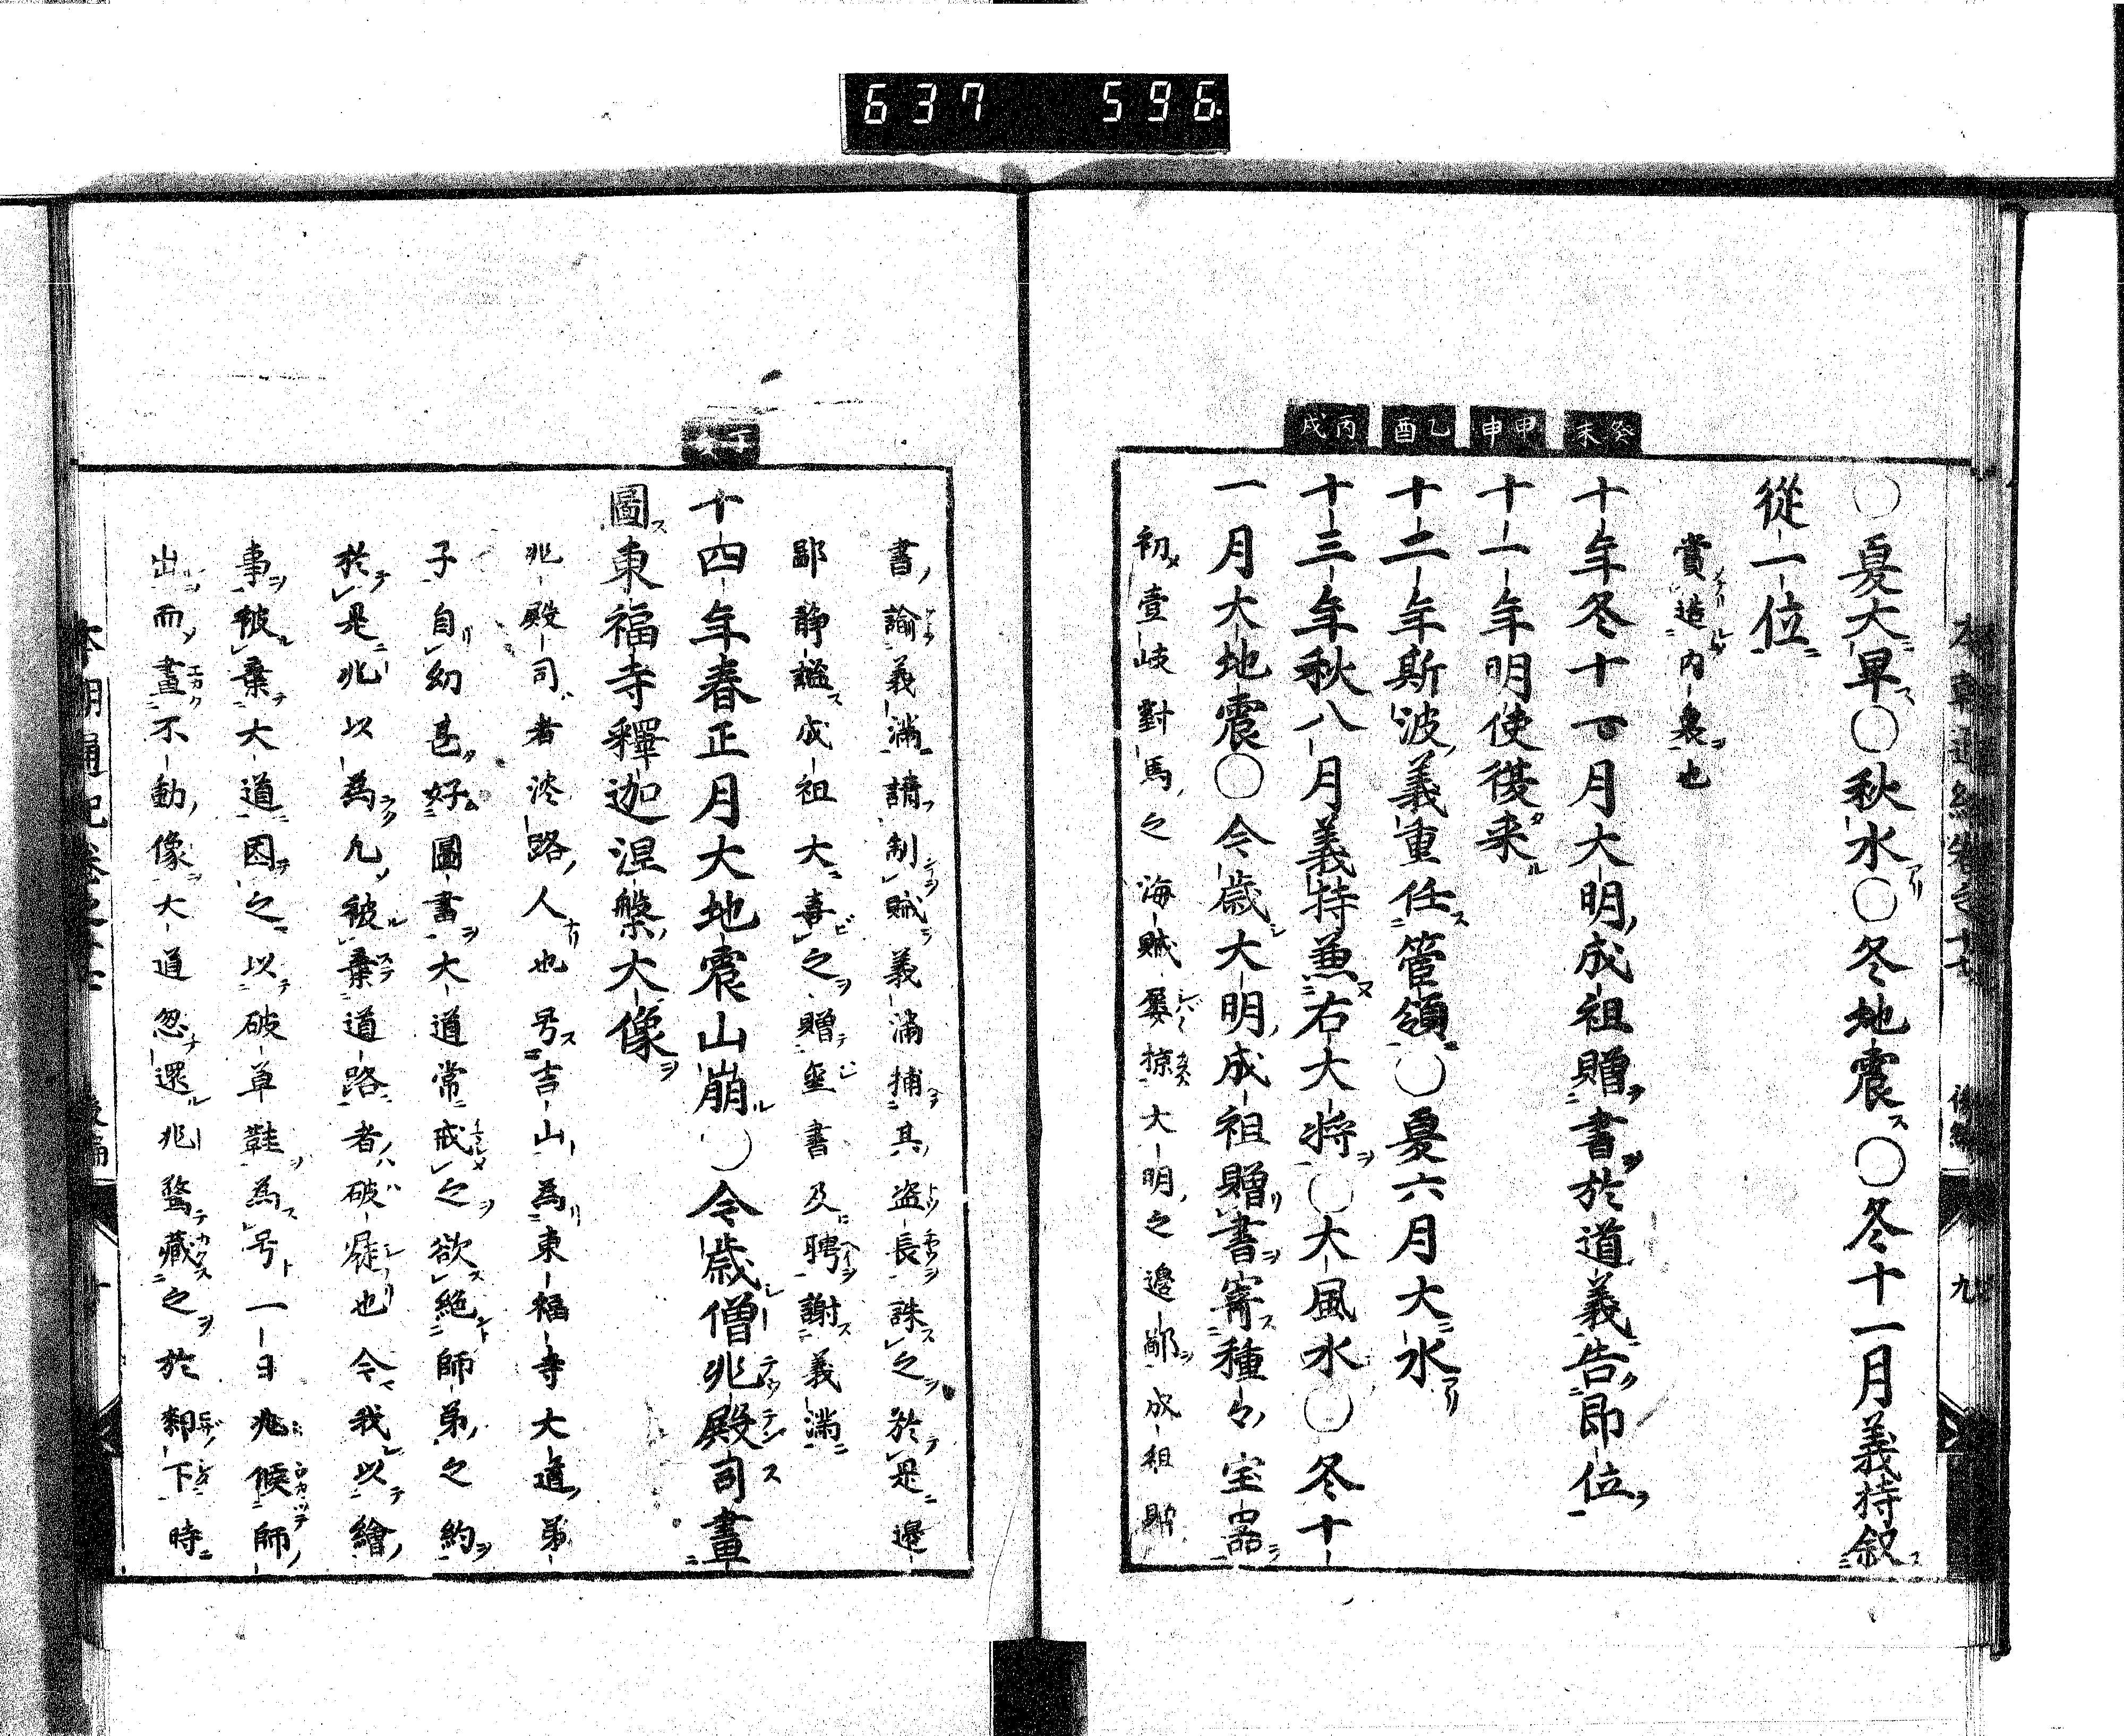 637 596
癸未
甲申
乙酉
丙戌
○夏大旱○秋水○冬地震○冬十一月義持叙
從一位
賞造内裏也
十年冬十一月大明成祖贈書於道義告即位
十一年明使復来
十二年斯波義重任管領○夏六月大水
十三年秋八月義持兼右大将○大風水○冬十
一月大地震○今歳大明成祖贈書寄種々宝器
初壹岐對馬之海賊屡掠大明之邊鄙成祖賜
九
丁亥
書諭義滿請制賊義滿捕其盗長誅之於是邊
鄙静謐成祖大喜之贈璽書及聘謝義満
十四年春正月大地震山崩○今歳僧兆殿司畫
圖東福寺釋迦涅槃大像
兆殿司者淡路人也号吉山為東福寺大道弟
子自幼甚好圖書大道常戒之欲絶師弟之約
於是兆以為凡被棄道路者破屣也今我以繪
事被棄大道因之以破草鞋為号一日兆候師
出而畫不動像大道忽還兆蟄藏之於郀下時
本朝通紀巻之十七 後編 十